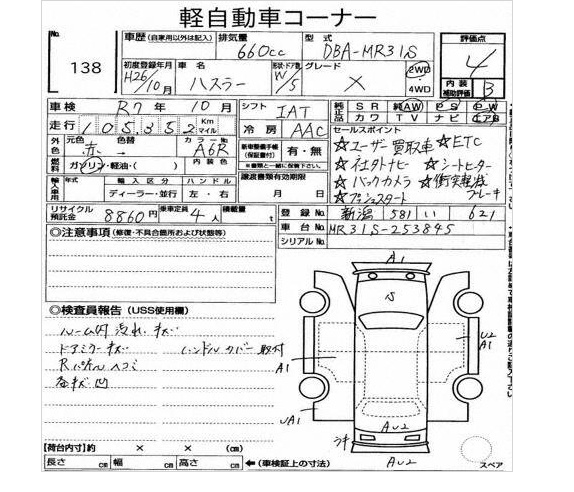 軽自動車コーナー
No. 138
車歴 (自家用以外は記入) 排気量 660cc 型式 DBA-MR31S 評価点 4
初度登録年月 H26/10月 車名 ハスラー 形状・ドア数 W/5 グレード X 2WD 4WD 内装補助評価 B
車検 R7年 10月 シフト IAT 純正品 SR 純AW PS PW
走行 105,352 Km マイル 冷房 AAC 純正品 カワ TV ナビ エアB
外色 元色 赤 色替 カラーNo. A6R 新車整備手帳(保証書付) 有・無 セールスポイント
☆ユーザー買取車 ☆ETC
燃料 ガソリン・軽油・( ) ※書類と一緒に保管して下さい。 ☆社外ナビ ☆シートヒーター
輸入車用 年式 輸入区分 ハンドル 譲渡書類有効期限 ☆バックカメラ ☆衝突軽減ブレーキ
ディーラー・並行 左・右 月 日 ☆プッシュスタート
リサイクル預託金 8860円 乗車定員 4人 積載量 t 登録No. 新潟 581 い 621
◎注意事項 (修復・不具合箇所および状態等) 車台No. MR31S-253845
シリアルNo.
◎検査員報告 (USS使用欄)
ルーム内汚れ、キズ
ドアミラーキズ ハンドルカバー取付
Rパネルヘコミ
各キズ凹
A1
S
U2
A1
A1
UA1
AU2
AU2
スペア
【荷台内寸】約 × × (cm)
長さ cm 幅 cm 高さ cm ←(車検証上の寸法)